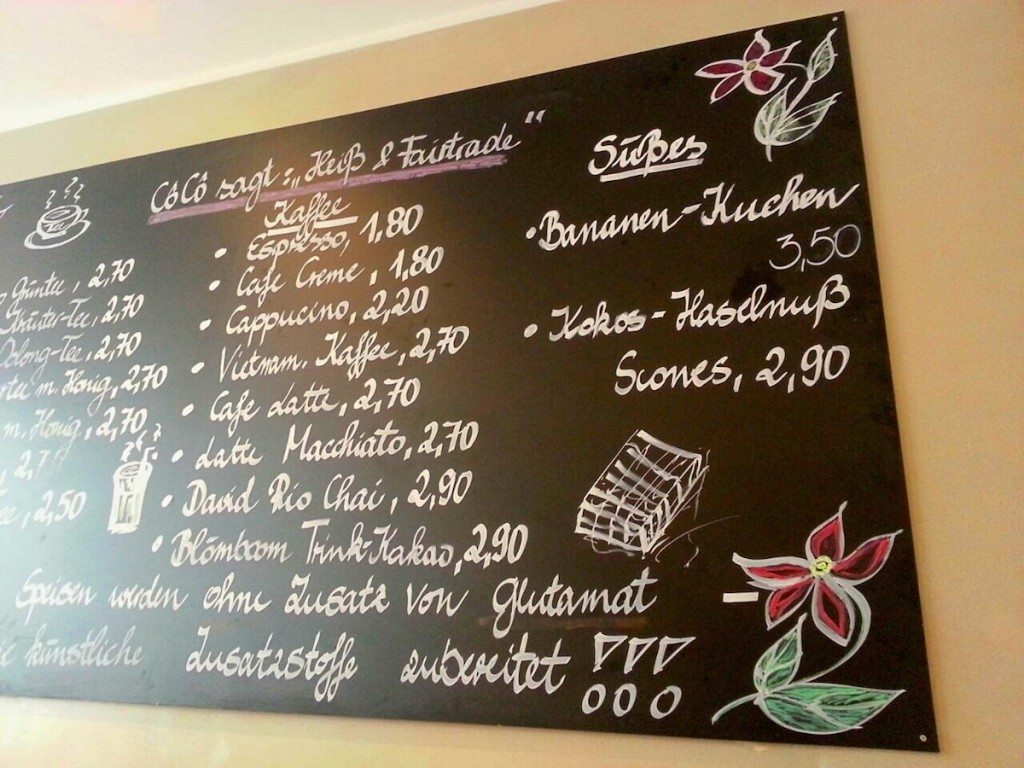 CôCô sagt: „Heiß & Fairtrade"
Grüntee, 2,70
Kräuter-Tee, 2,70
Oolong-Tee, 2,70
m. Honig, 2,70
m. Honig, 2,70
2,50
Kaffee
• Espresso, 1,80
• Cafe Creme, 1,80
• Cappucino, 2,20
• Vietnam. Kaffee, 2,70
• Cafe Latte, 2,70
• Latte Macchiato, 2,70
• David Rio Chai, 2,90
• Blömboom Trink-Kakao, 2,90
Süßes
• Bananen-Kuchen
3,50
• Kokos-Haselnuß
Scones, 2,90
Speisen wurden ohne Zusatz von Glutamat -
künstliche Zusatzstoffe zubereitet !!!